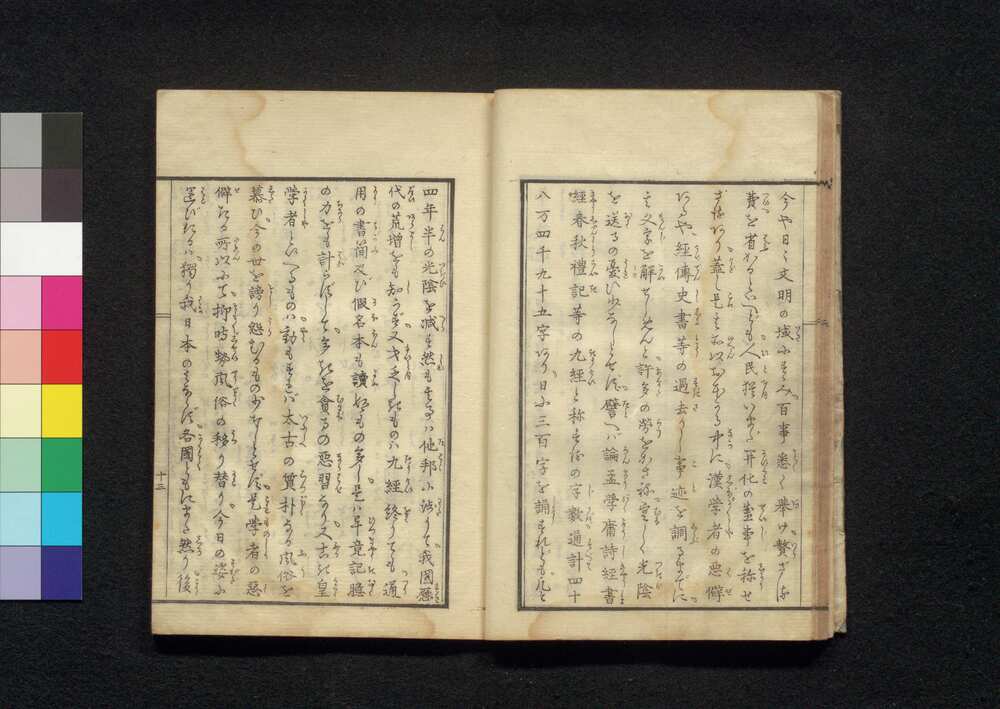 今や日々文明の域にすゝみ百事悉く挙け贅ざる
費を省かるといへども人民挙つて开化の
蓋し是を 中に漢学者の悪僻
なるや経傳史書等の過去りし事迹を調るまでに
文字を解せしめんと許多の労をかさね空しく光陰
を送るの憂ひ少なしとせず譬へバ論孟学庸詩経書
経春秋禮記等の九経と称するの字数通計四十
八万四千九十五字なり日に三百字を誦すれども凡そ
四年半の光陰を減も然もするハ他邦に渉りて我国歴
代の荒増をも知らず又才乏しきものハ九経終りても通
用の書簡及び假名本も讀ぬもの多し是ハ年竟記臆
の力をも計らずして多きを貪るの悪習なり又古き皇
学者といへるものハ動もすれバ太古の質朴なる風俗を
慕ひ今の世を謗り怨むるもの少なしとせず是学者の悪
僻なる所以にて抑時勢風俗の移り替り今日の姿に
運びたるハ獨り我日本のみならず各国ともにみな然り後
十三